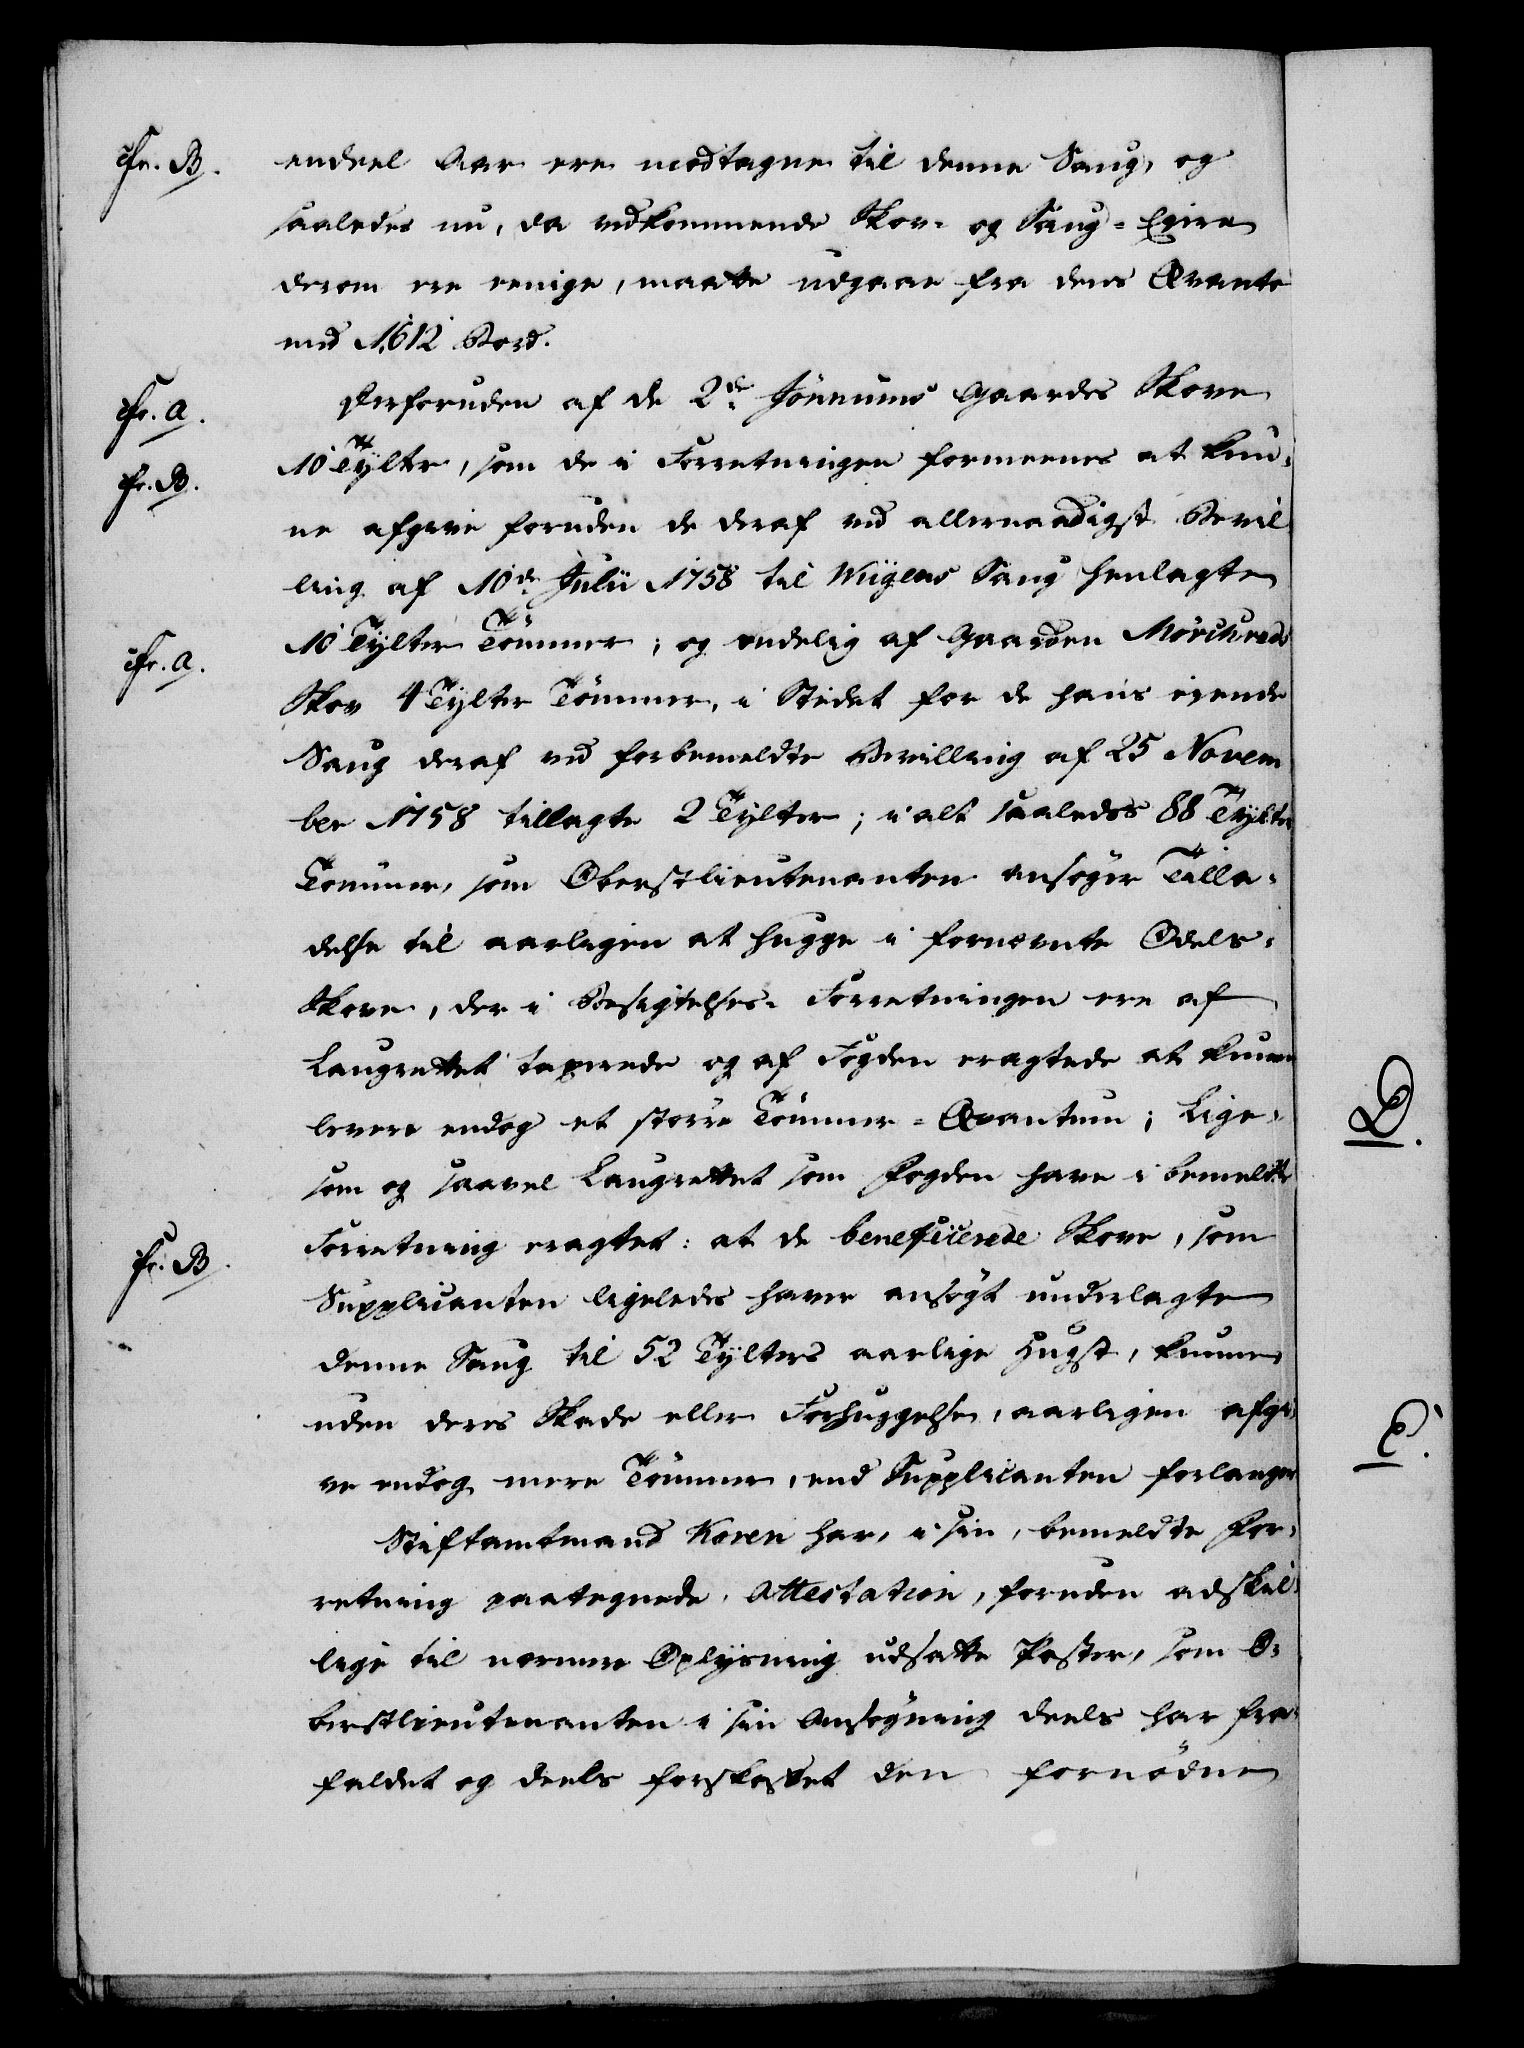 cfr. B. endeel Aar ere modtagne til denne Saug, og
saaledes nu, da vedkommende Skov- og Saug-Eiere
derom ere eenige, maatte udgaae fra dens Qvanto
med 1,612 Bord.
cfr. a. Derforuden af de 2de Jönnums Gaardes Skove
cfr. B. 10 Tylter, som de i Forretningen formeenes at kun-
ne afgive foruden de deraf ved allernaadigst Bevil-
ling af 10de Julii 1758 til Wiigens Saug henlagte
cfr. a. 10 Tylter Tömmer; og endelig af Gaarden Mörchreds
Skov 4 Tylter Tömmer, i Stedet for de hans eiende
Saug deraf ved forbemeldte Bevilling af 25 Novem
ber 1758 tillagte 2 Tylter; i alt saaledes 88 Tylter
Tömmer, som Oberstlieutenanten ansöger Tilla-
delse til aarligen at hugge i fornevnte Odels-
Skove, der i Besigtelses-Forretningen ere af
Laugrettet taxerede og af Fogden eragtede at kunne
levere endog et större Tömmer-Qvantum; Lige-
D.
som og saavel Laugrettet som Fogden have i bemeldte
cfr. B. Forretning eragtet: at de beneficerede Skove, som
Supplicanten ligeledes haver ansögt underlagte
denne Saug til 52 Tylters aarlige Hugst, kunne
uden deres Skade eller Forhuggelse, aarligen afgi-
E.
ve endog mere Tömmer, end Supplicanten forlanger
Stiftamtmand Koren har, i sin, bemeldte For-
retning paategnede, Attestation, foruden adskil-
lige til nærmere Oplysning udsatte Poster, som O-
berstlieutenanten i sin Ansögning deels har fra-
faldet og deels forskaffet den fornödne